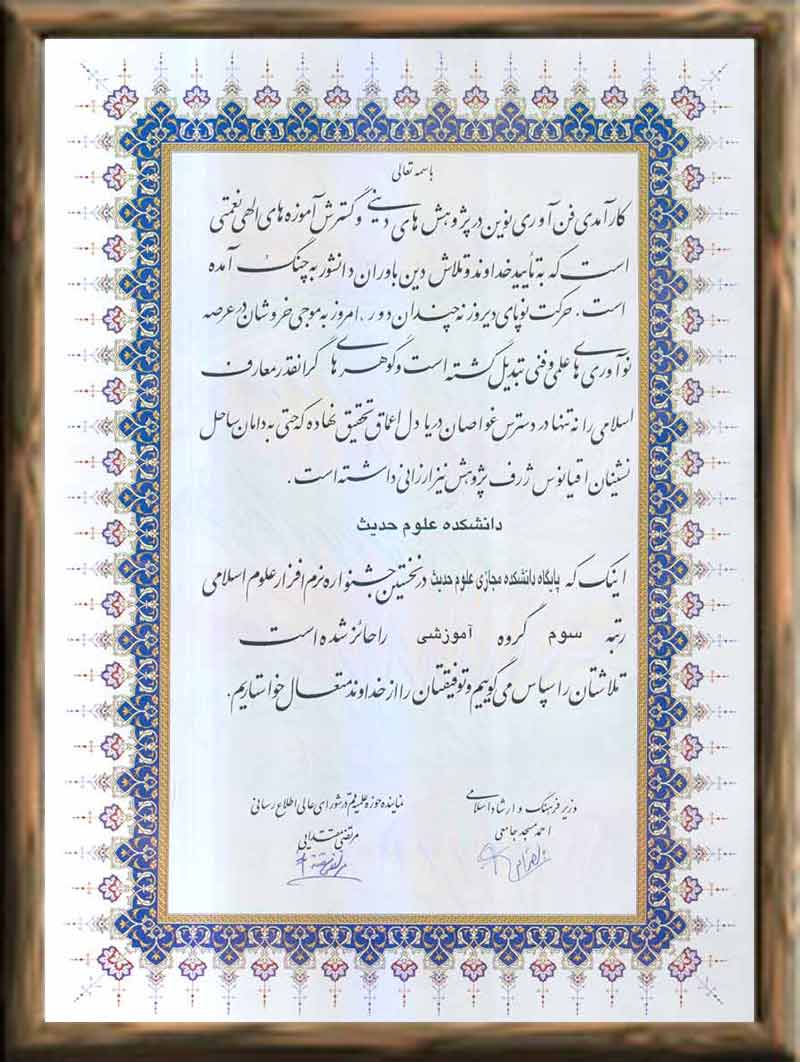 باسمه تعالی
کارآمدی فن آوری نوین در پژوهش های دینی و گسترش آموزه های الهی نعمتی
است که به تأیید خداوند و تلاش دین باوران دانشور به چنگ آمده
است. حرکت نوپای دیروز نه چندان دور، امروز به موجی خروشان در عرصه
نوآوری های علمی و فنی تبدیل گشته است و گوهر های گرانقدر معارف
اسلامی را نه تنها در دسترس غواصان دریا دل اعماق تحقیق نهاده که حتی به دامان ساحل
نشینان اقیانوس ژرف پژوهش نیز ارزانی داشته است.
دانشکده علوم حدیث
اینک که پایگاه دانشکده مجازی علوم حدیث در نخستین جشنواره نرم افزار علوم اسلامی
رتبه سوم گروه آموزشی را حائز شده است
تلاشتان را سپاس می گوییم و توفیقتان را از خداوند متعال خواستاریم.
وزیر فرهنگ و ارشاد اسلامی
احمد مسجد جامعی
نماینده حوزه علمیه قم در شورای عالی اطلاع رسانی
مرتضی مقتدایی